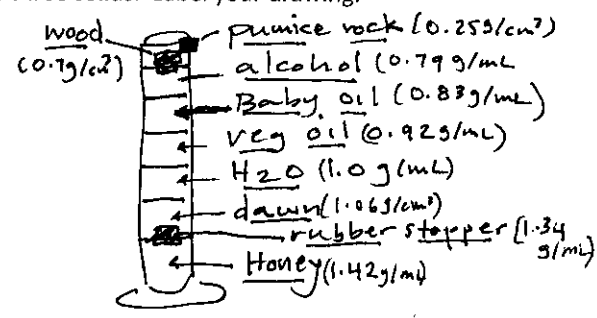 wood
(0.7g/cm³)
pumice rock (0.25g/cm³)
alcohol (0.79 g/mL
Baby oil (0.83g/mL)
veg oil (0.92g/mL)
H2O (1.0 g/mL)
dawn (1.06g/cm³)
rubber stopper (1.34
g/mL)
Honey (1.42g/mL)